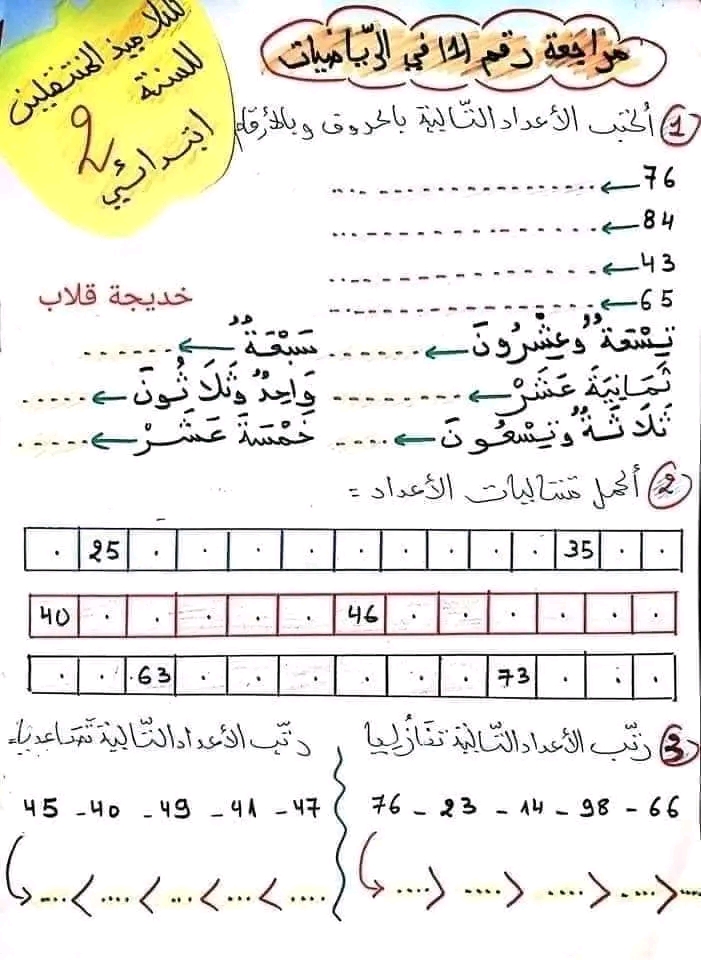 مراجعة رقم (1) في الرّياضيات
للتلاميذ المنتقلين
للسنة
2
ابتدائي
1 أكتب الأعداد التّالية بالحروف وبالأرقام
76 ← ............
84 ← ............
43 ← ............
65 ← ............
خديجة قلاب
تِسْعَةٌ وَعِشْرُونَ ← ...... سَبْعَةٌ ← ......
ثَمَانِيَةَ عَشَرْ ← ...... وَاحِدٌ وَثَلَاثُونَ ← ......
ثَلَاثَةٌ وَتِسْعُونَ ← ...... خَمْسَةَ عَشَرْ ← ......
2 أكمل متتاليات الأعداد =
. 25 . . . . . . . . . 35 . .
40 . . . . . 46 . . . . . .
. . .63 . . . . . . 73 . . .
3 رتّب الأعداد التّالية تنازُليا
76 - 23 - 14 - 98 - 66
.... > .... > .... > .... > ....
رتّب الأعداد التّالية تَصاعديا=
45 - 40 - 49 - 41 - 47
.... < .... < .... < .... < ....